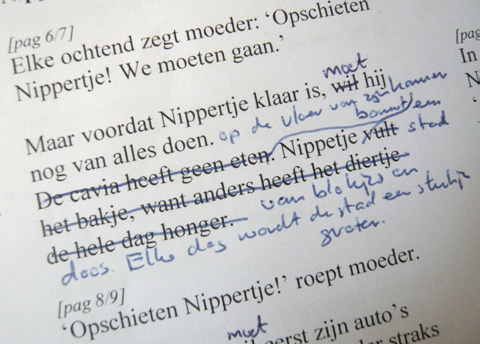 [pag 6/7]
Elke ochtend zegt moeder: 'Opschieten
Nippertje! We moeten gaan.'
moet
Maar voordat Nippertje klaar is, wil hij
nog van alles doen. op de vloer van zijn kamer
bouwt een
De cavia heeft geen eten. Nippetje vult stad
het bakje, want anders heeft het diertje
de hele dag honger. van blokjes en
doos. Elke dag wordt de stad een stukje
groter.
[pag 8/9]
'Opschieten Nippertje!' roept moeder.
moet
eerst zijn auto's
straks
[pag
In
N